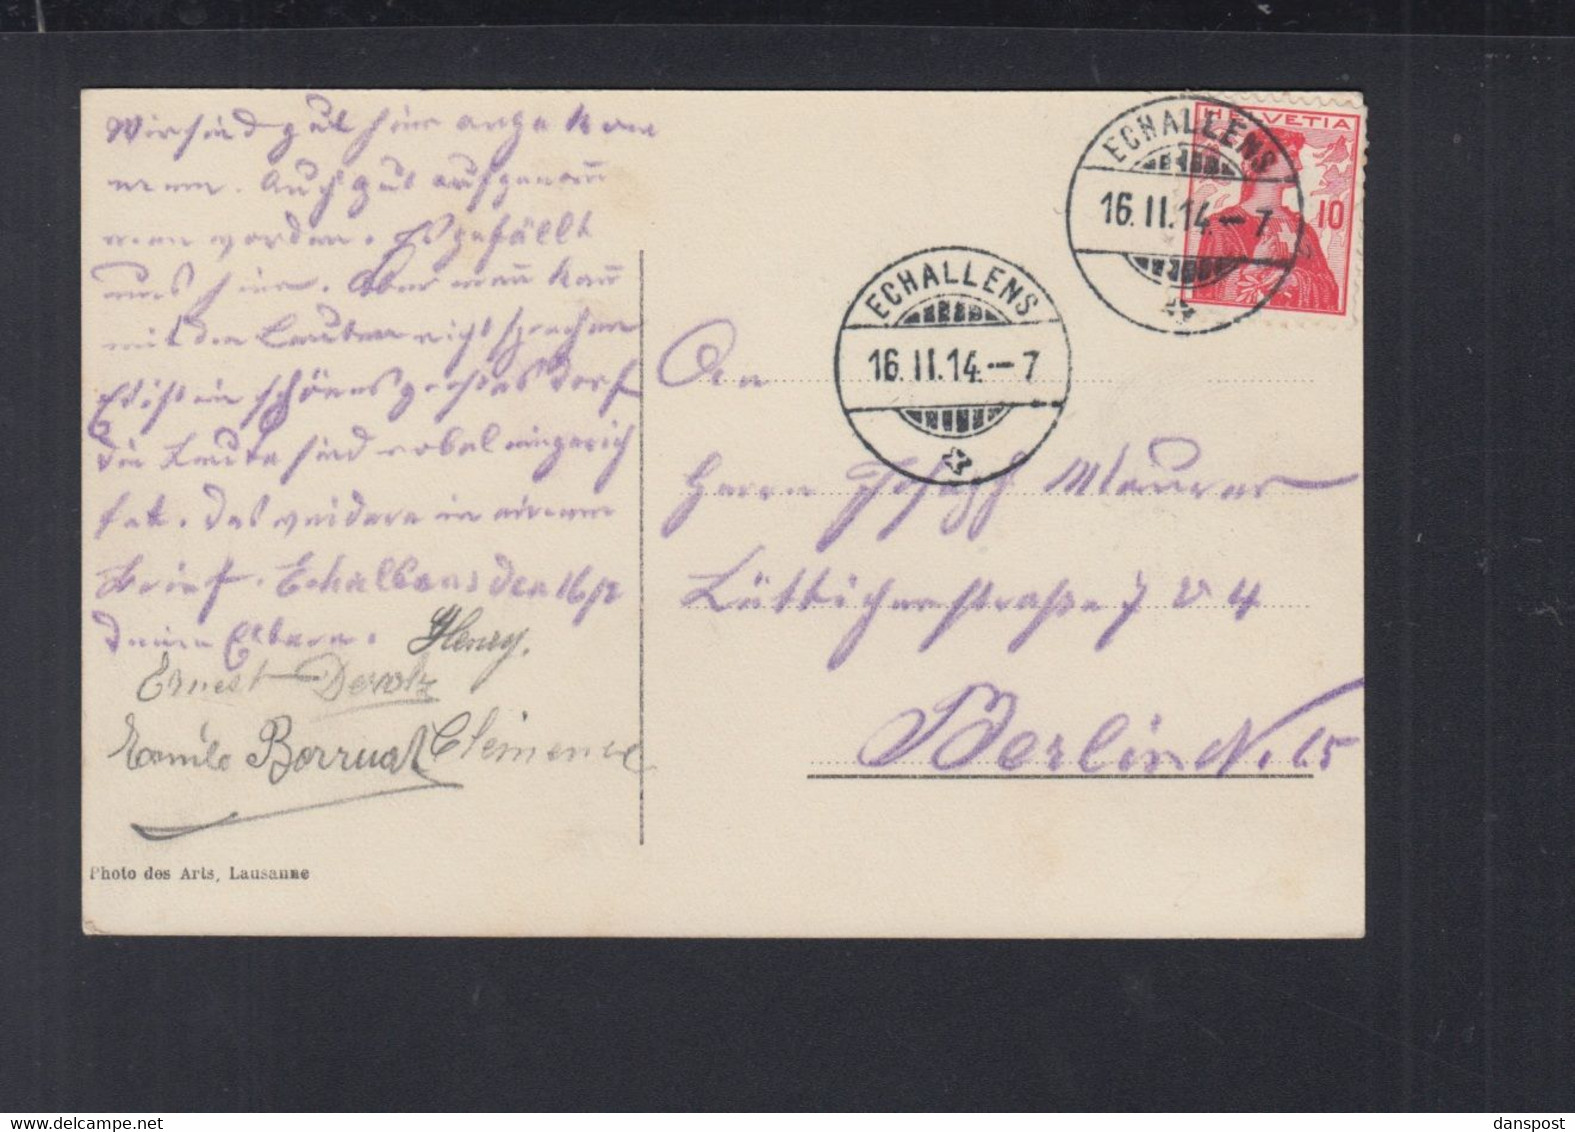 Wir sind gut hier angekom
menen. Auch gut aufgenom̅
men worden. Es gefällt
uns hier. Aber man̅ kan̅
mit den Leuten nicht sprechen
Es ist ein schönes großes Dorf
die Leute sind nobel eingerich
tet. Das weidere in einem
Brief. Echallens den 16/2
deine Eltern. Henry.
Ernest
Emile Borruat Clemence
Photo des Arts, Lausanne
HELVETIA
10
ECHALLENS
16.II.14.-7
ECHALLENS
16.II.14.-7
An
Herrn Joseph Maurer
Lütticherstraße 7 v 4
Berlin N. 65
danspost